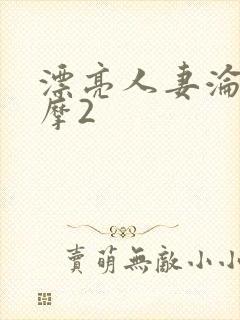 漂亮人妻淪
摩2
賣萌無敵小小